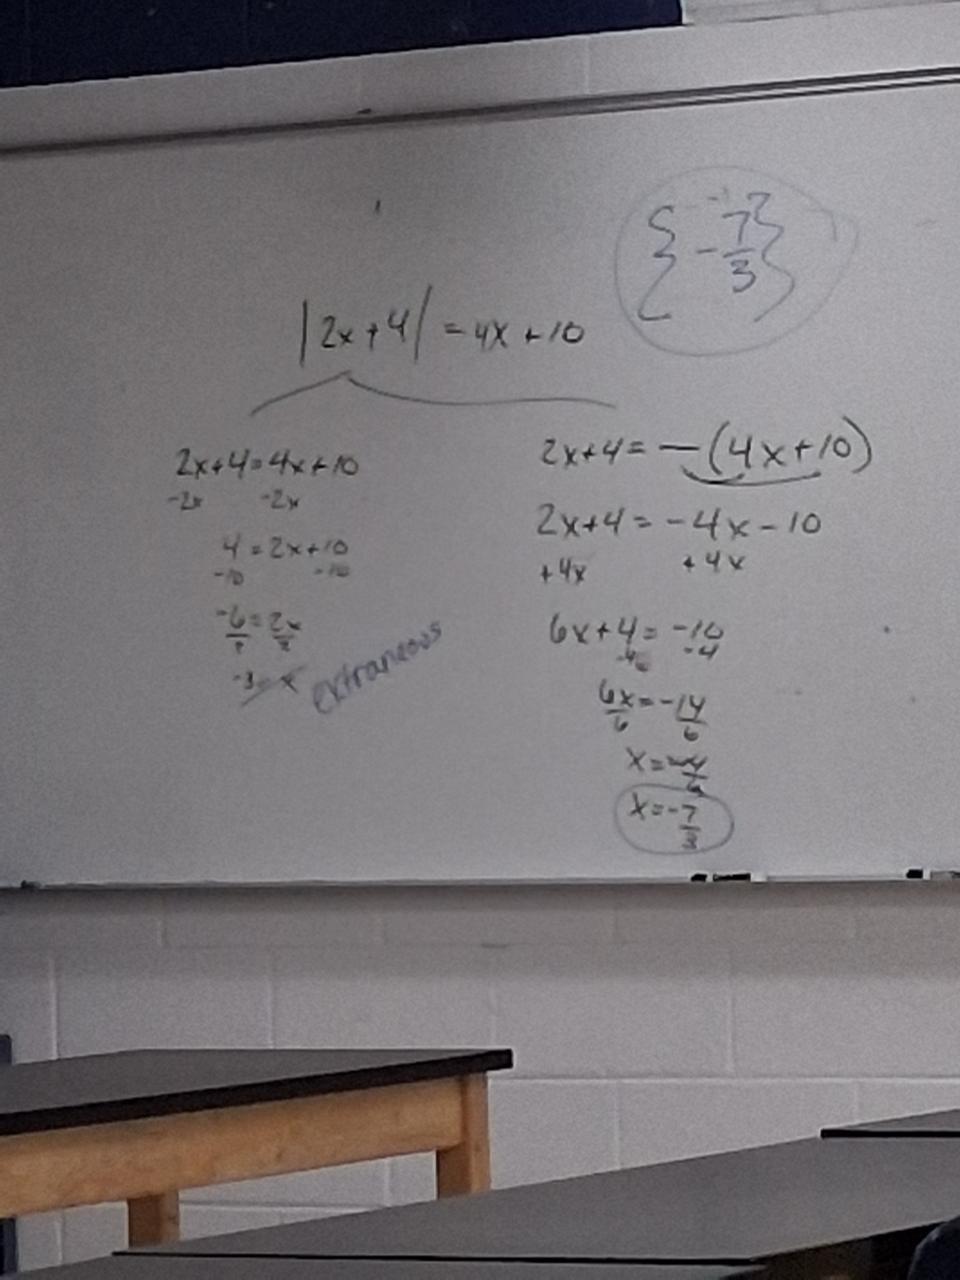 {-7/3}
|2x+4| = 4x+10
2x+4=4x+10
-2x -2x
4=2x+10
-10 -10
-6=2x
2 2
-3=x
extraneous
2x+4= -(4x+10)
2x+4= -4x-10
+4x +4x
6x+4= -10
-4 -4
6x=-14
6 6
x=-14/6
x=-7/3